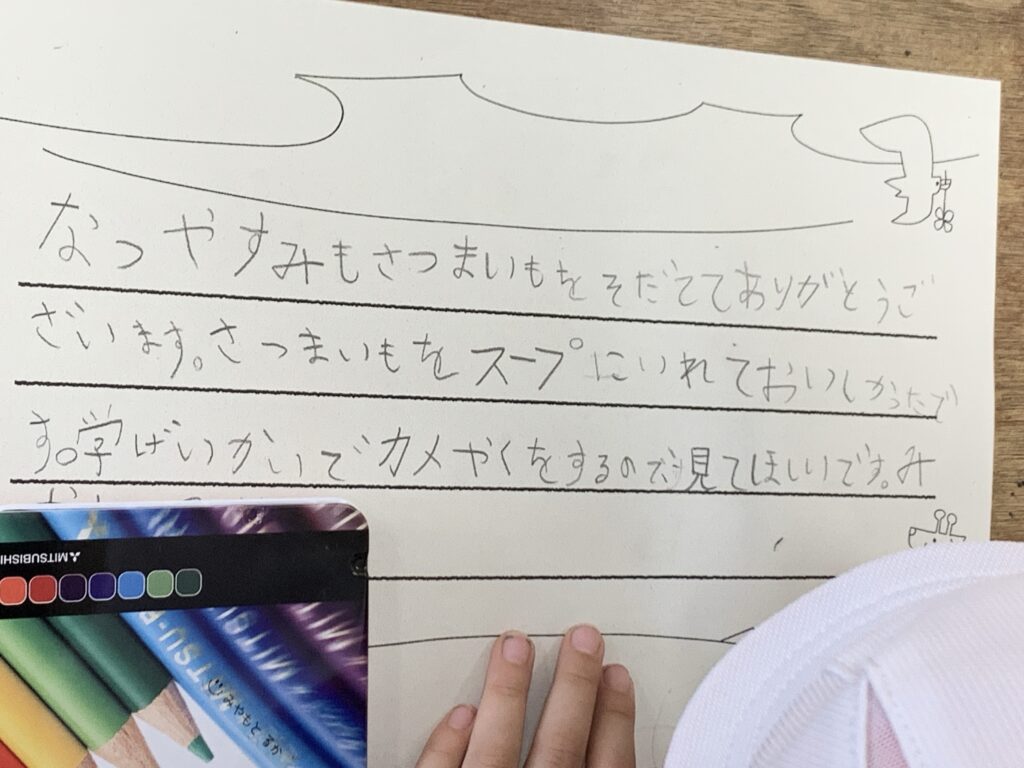 なつやすみもさつまいもをそだててありがとうご
ざいます。さつまいもをスープにいれておいしかったで
す。学げいかいでカメやくをするので見てほしいです。み
MITSUBISHI
MITSUBISHI
みやもと るか